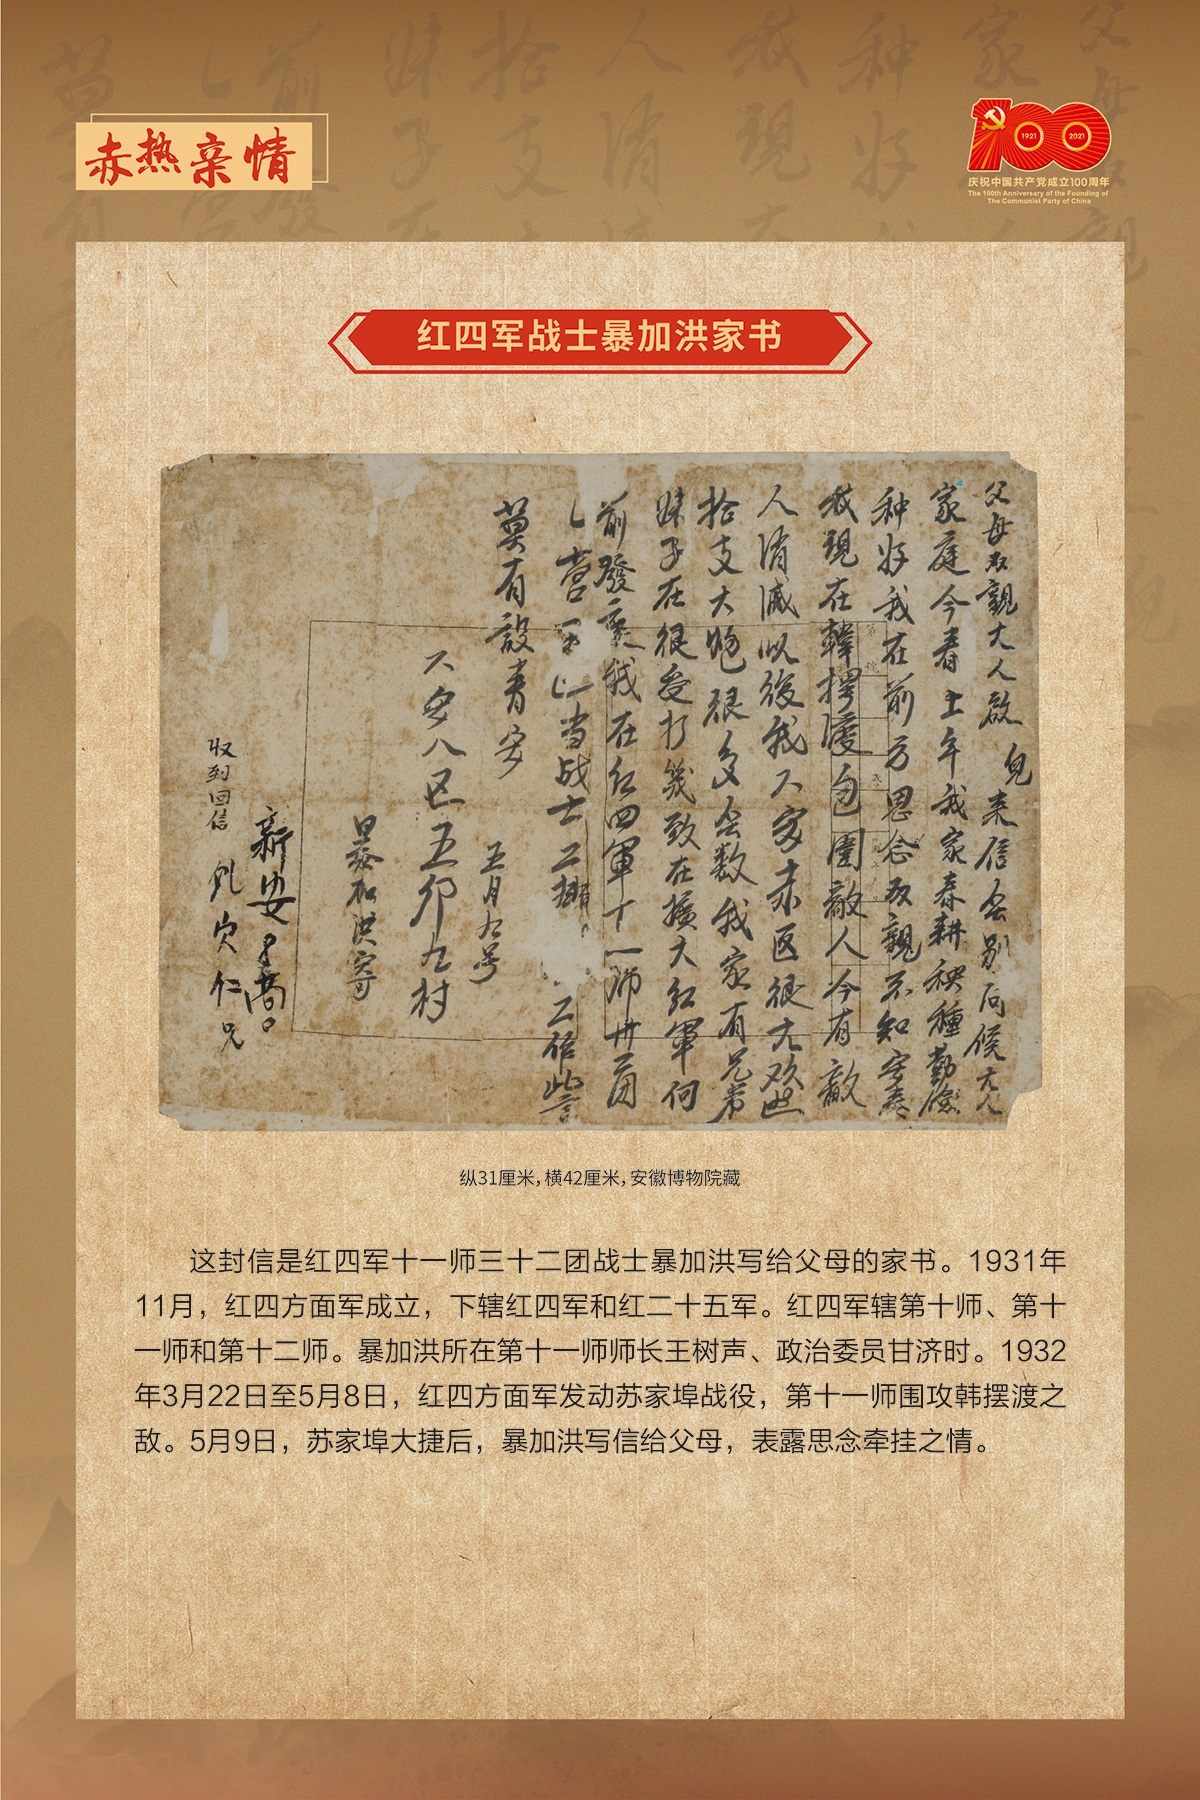 赤热亲情
100
1921
2021
庆祝中国共产党成立100周年
The 100th Anniversary of the Founding of
The Communist Party of China
红四军战士暴加洪家书
父母双親大人啟 兒来信会别问候大人
家庭今春上年我家春耕秧種勤儉
种好我在前方思念双親不知安泰
我現在韓擺渡包圍敵人今有敵
人消滅以後我六安赤区很大欢迎
拾支大炮很多会数我家有兄弟
妹子在很受打 致在擴大红軍何
前發 我在红四軍十一师卅二团
营 当战士二排 工作此言
莫有設 青安
五月九号
六安八区五 九村
暴加洪寄
新安
仁兄
收到回信
纵31厘米，横42厘米，安徽博物院藏
这封信是红四军十一师三十二团战士暴加洪写给父母的家书。1931年
11月，红四方面军成立，下辖红四军和红二十五军。红四军辖第十师、第十
一师和第十二师。暴加洪所在第十一师师长王树声、政治委员甘济时。1932
年3月22日至5月8日，红四方面军发动苏家埠战役，第十一师围攻韩摆渡之
敌。5月9日，苏家埠大捷后，暴加洪写信给父母，表露思念牵挂之情。